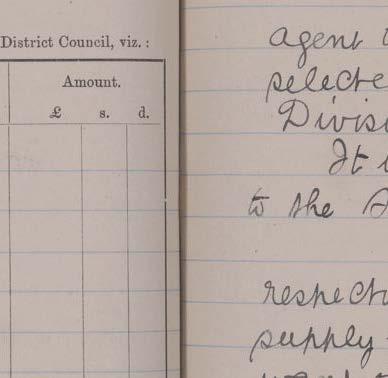 District Council, viz. :
Amount.
£ s. d.
agent
selecte
Divisi
It i
to the
respectu
supply